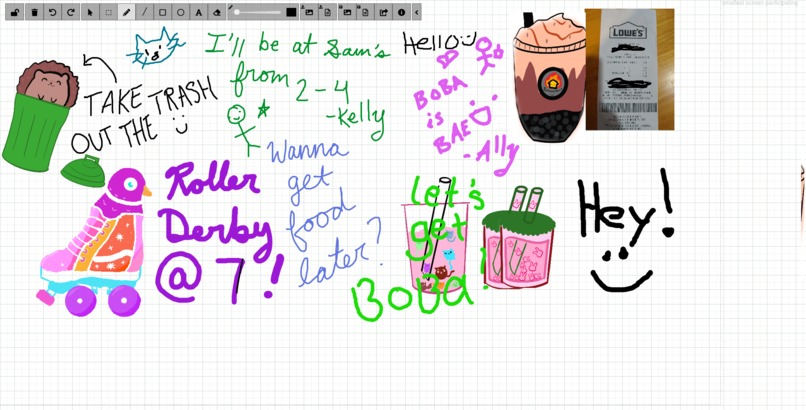 TAKE TRASH
OUT THE
I'll be at Sam's
from 2-4
-Kelly
Hello
BOBA
is
BAE
-Ally
LOWE'S
Roller
Derby
@ 7!
Wanna
get
food
later?
Let's
get
BoBa!
Hey!